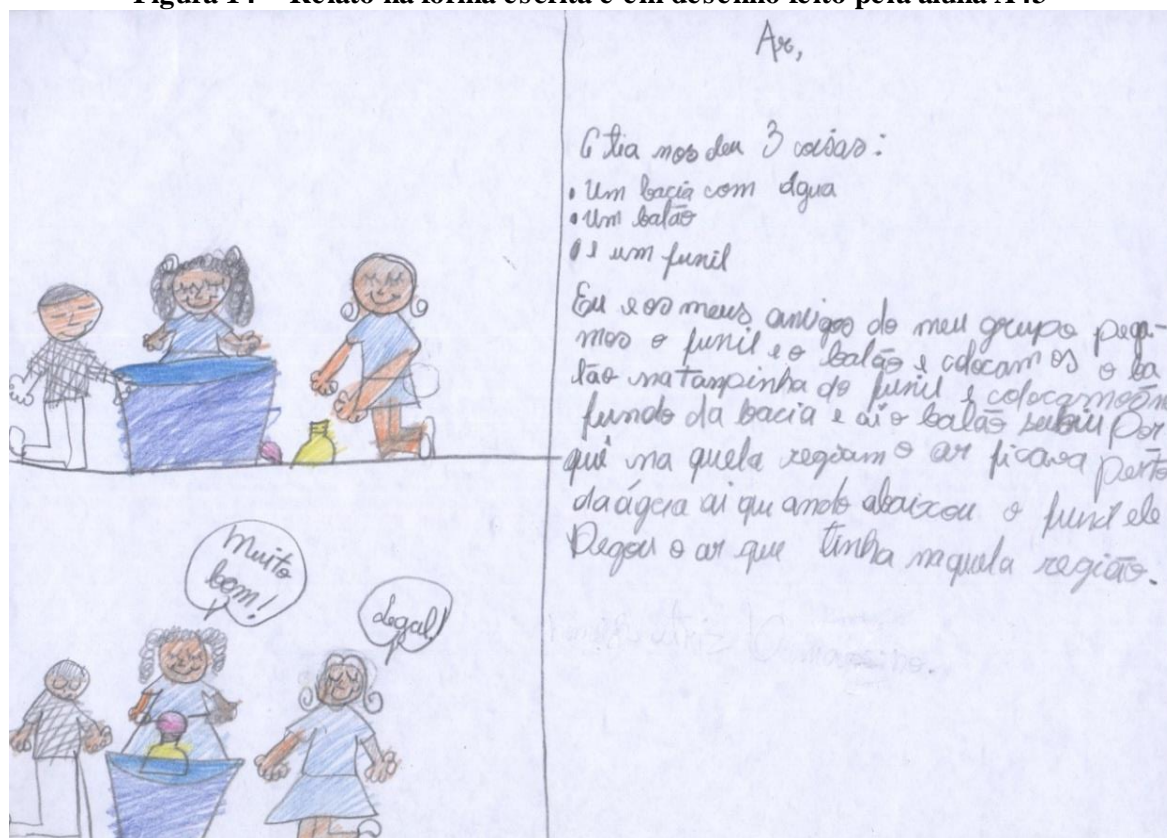 Figura 14 – Relato na forma escrita e em desenho feito pela aluna A4B
Ar,
A tia nos deu 3 coisas:
• Um bacia com água
• Um balão
• E um funil
Eu e os meus amigos do meu grupo pega-
mos o funil e o balão e colocamos o ba
lão na tampinha do funil e colocamos
fundo da bacia e aí o balão subiu por
quê na quela regiam o ar ficava perto
da água ai qu ando abaixou o funil ele
Pegou o ar que tinha naquela região.
Muito
bom!
Legal!